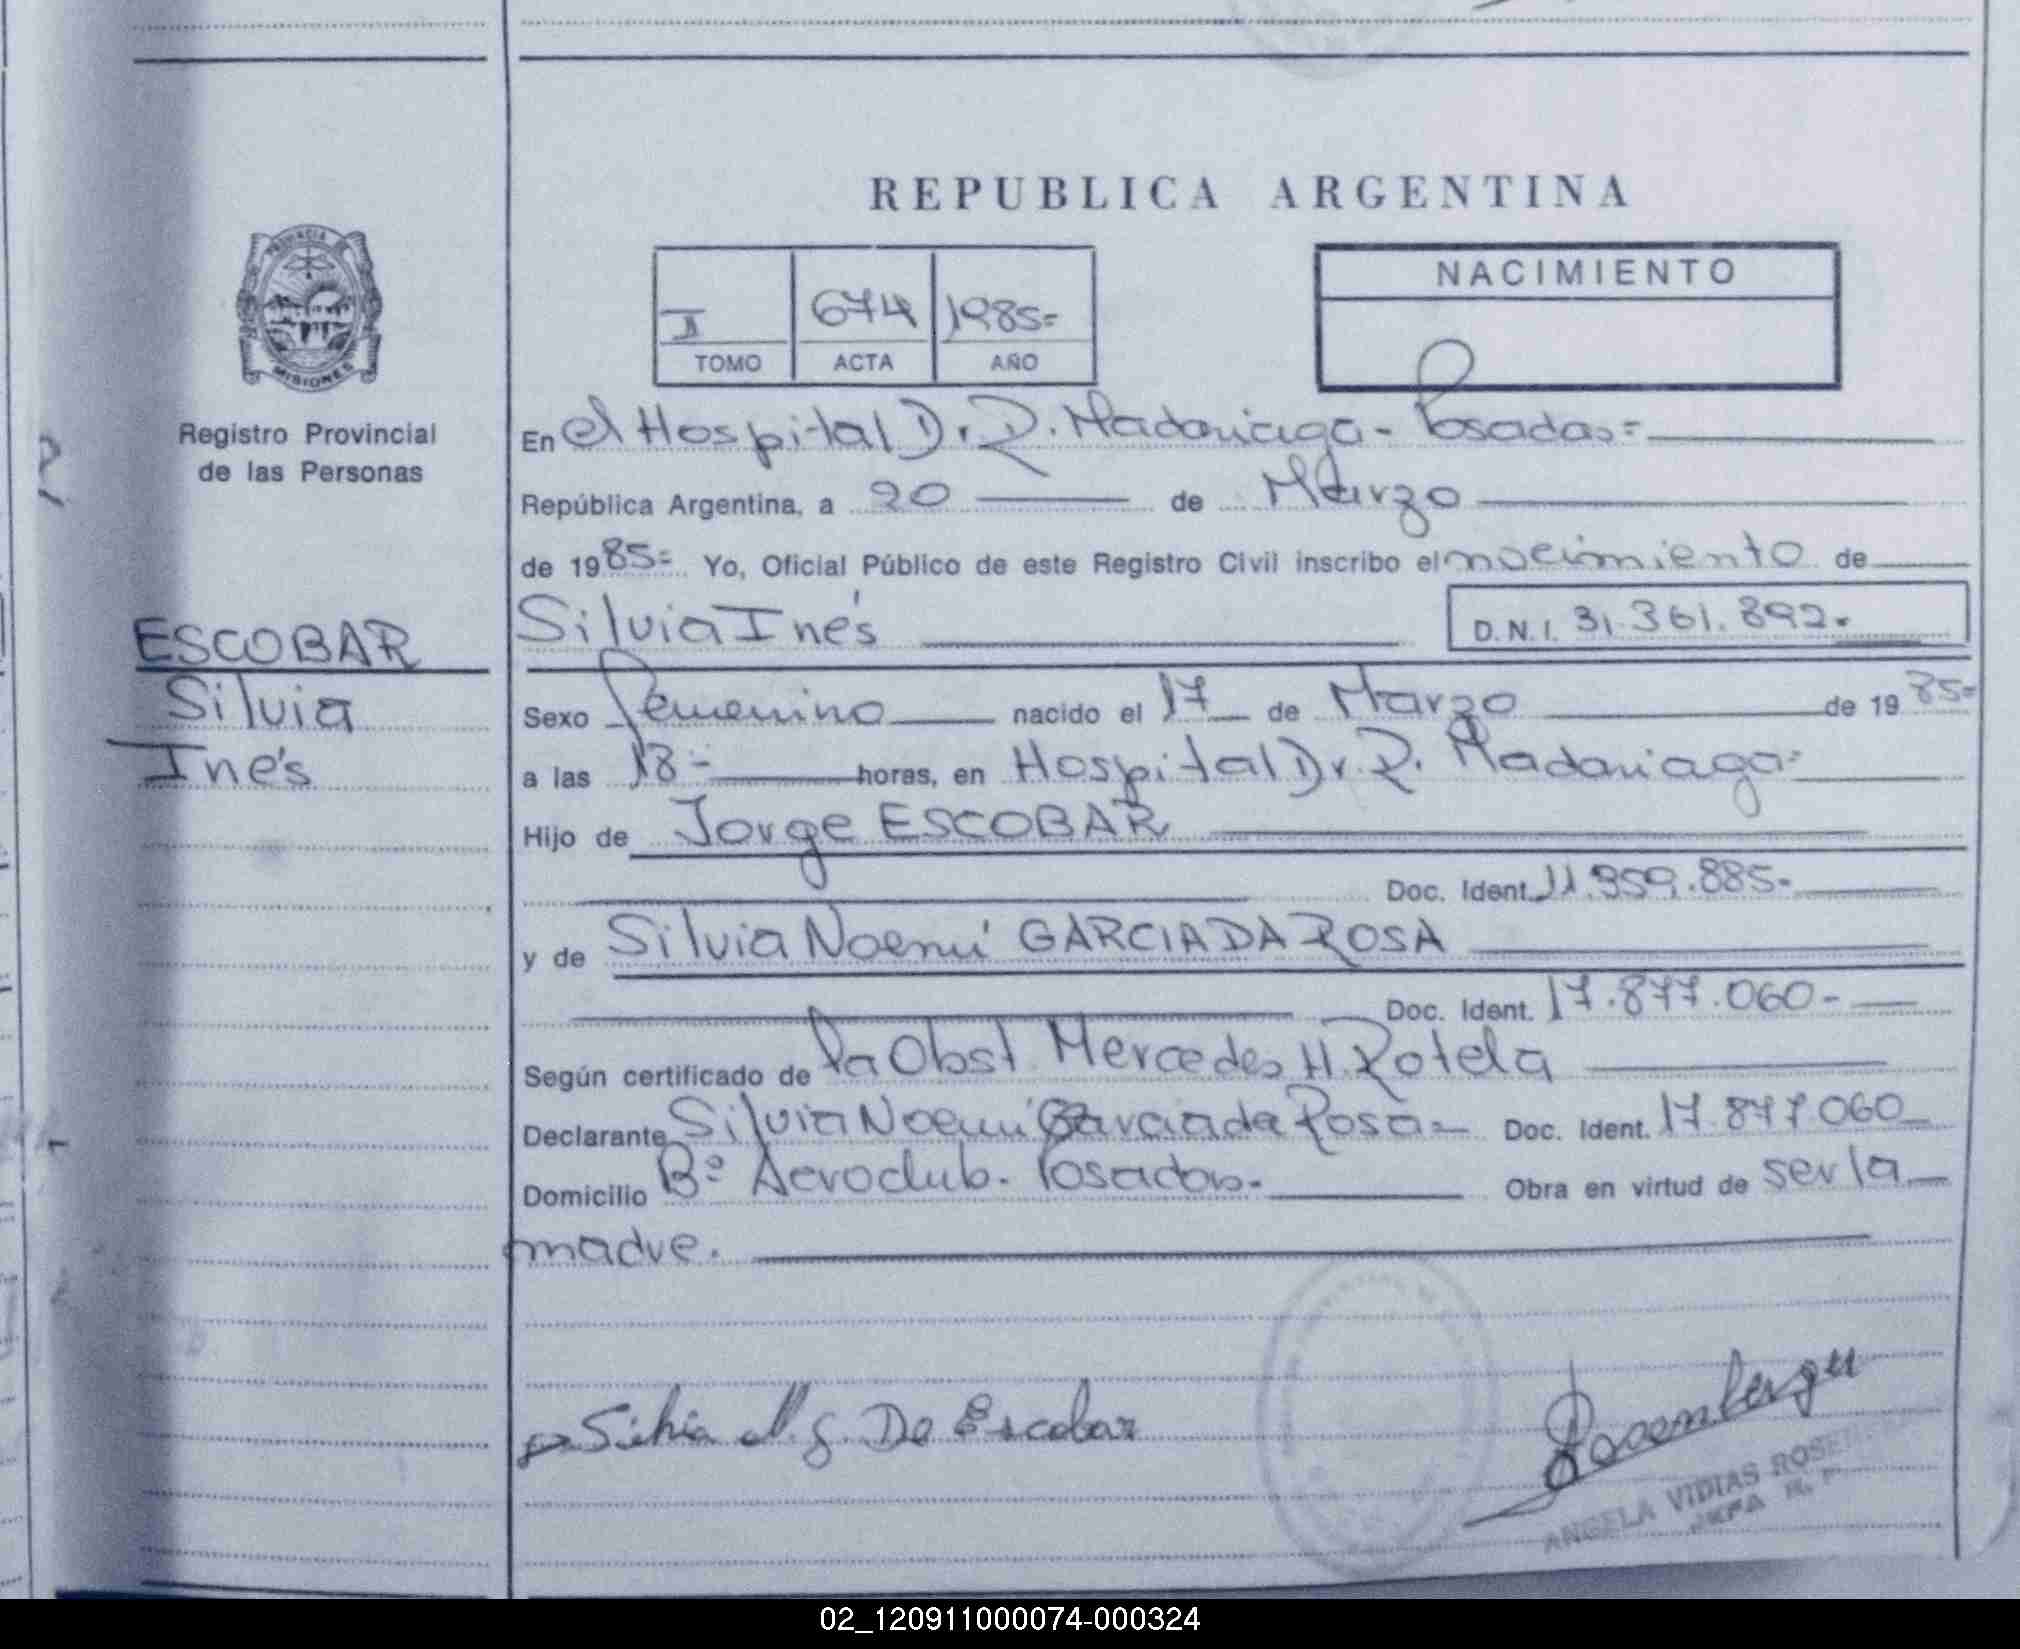 REPUBLICA ARGENTINA
PROVINCIA DE
MISIONES
Registro Provincial
de las Personas
I 674 1985=
TOMO ACTA AÑO
NACIMIENTO
En el Hospital Dr. R. Madariaga - Posadas=
República Argentina, a 20 de Marzo
de 1985= Yo, Oficial Público de este Registro Civil inscribo el nacimiento de
ESCOBAR
Silvia
Inés
Silvia Inés D.N.I. 31.361.892.
Sexo Femenino nacido el 17 de Marzo de 1985=
a las 18= horas, en Hospital Dr. R. Madariaga=
Hijo de Jorge ESCOBAR
Doc. Ident. 11.959.885-
y de Silvia Noemí GARCIA DA ROSA
Doc. Ident. 17.877.060-
Según certificado de la Obst Mercedes H. Rotela
Declarante Silvia Noemí Garcia da Rosa= Doc. Ident. 17.877.060
Domicilio Bº Aeroclub. Posadas. Obra en virtud de ser la
madre.
Silvia N. G. De Escobar
ANGELA VIDIAS
02_120911000074-000324